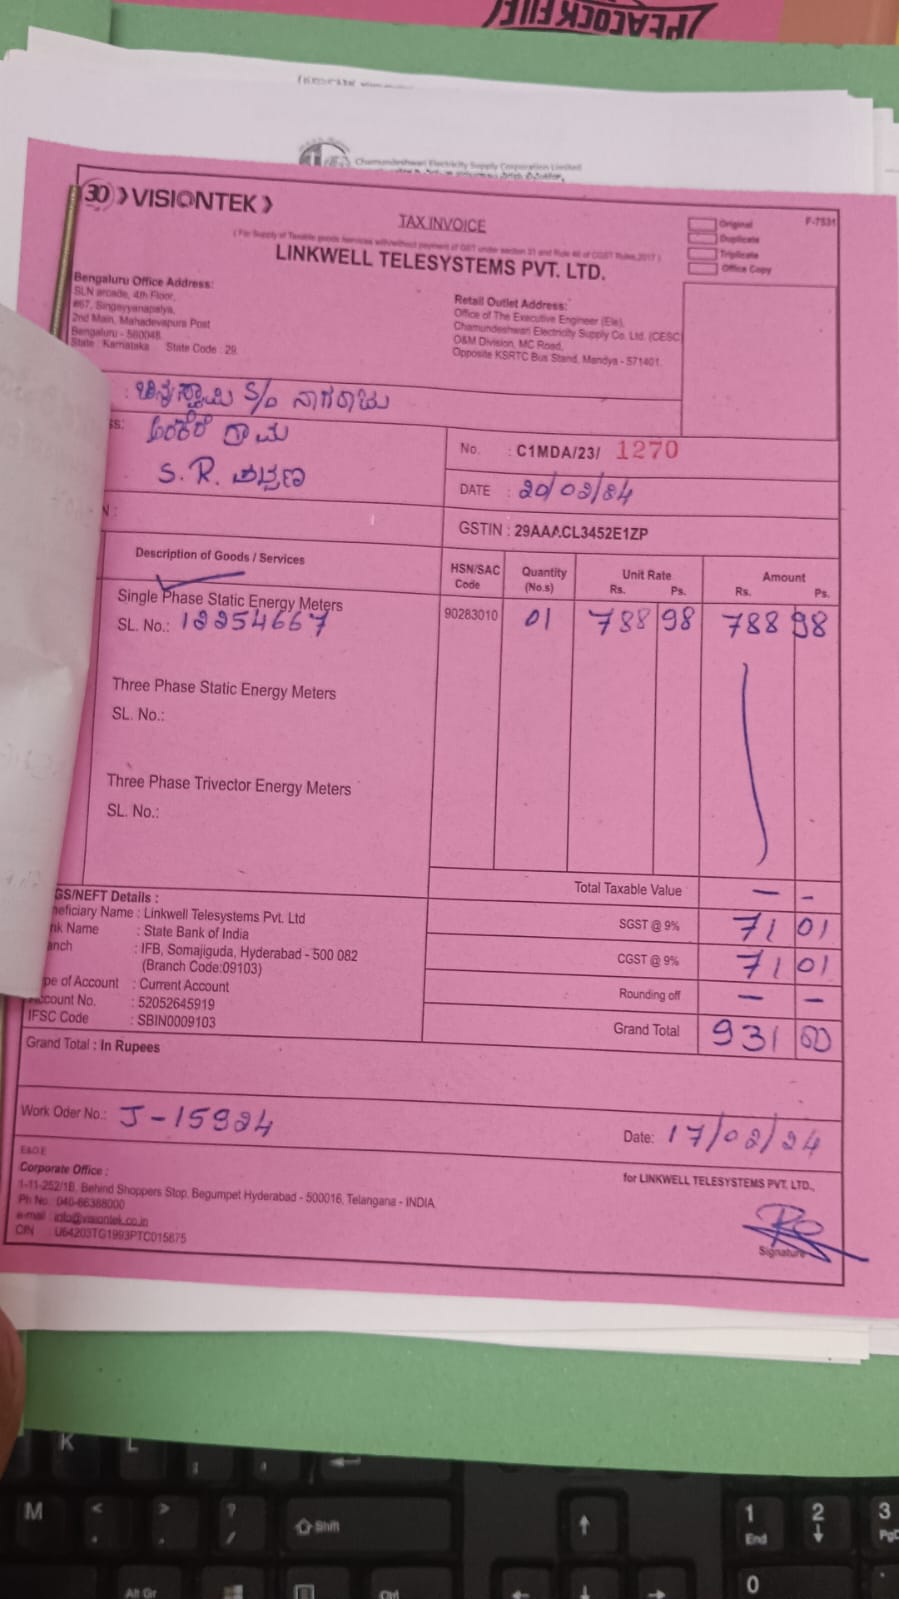 PEACOCK FILE
Chamundeshwari Electricity Supply Corporation Limited
30 VISIONTEK
TAX INVOICE
F-7531
Original
Duplicate
Triplicate
Office Copy
LINKWELL TELESYSTEMS PVT. LTD.
Bengaluru Office Address:
SLN arcade, 4th Floor,
#67, Singayyanapalya,
2nd Main, Mahadevapura Post
Bengaluru - 560048.
State : Karnataka State Code : 29
Retail Outlet Address:
Office of The Executive Engineer (Ele),
Chamundeshwari Electricity Supply Co. Ltd. (CESC)
O&M Division, MC Road,
Opposite KSRTC Bus Stand, Mandya - 571401.
: S/o ನಾಗರಾಜು
ss: ಗ್ರಾಮ
S. R. ಪಟ್ಟಣ
No. : C1MDA/23/ 1270
DATE : 20/02/24
N :
GSTIN : 29AAACL3452E1ZP
Description of Goods / Services
HSN/SAC Code
Quantity (No.s)
Unit Rate
Rs. Ps.
Amount
Rs. Ps.
Single Phase Static Energy Meters
SL. No.: 12254667
90283010 01 788 98 788 98
Three Phase Static Energy Meters
SL. No.:
Three Phase Trivector Energy Meters
SL. No.:
Total Taxable Value — -
SGST @ 9% 71 01
CGST @ 9% 71 01
Rounding off — -
Grand Total 931 00
GS/NEFT Details :
neficiary Name : Linkwell Telesystems Pvt. Ltd
nk Name : State Bank of India
anch : IFB, Somajiguda, Hyderabad - 500 082
(Branch Code:09103)
pe of Account : Current Account
Account No. : 52052645919
IFSC Code : SBIN0009103
Grand Total : In Rupees
Work Oder No.: J-15924
Date: 17/02/24
E&O.E
Corporate Office :
1-11-252/1B, Behind Shoppers Stop, Begumpet Hyderabad - 500016, Telangana - INDIA
Ph No. 040-66388000
e-mail : info@visiontek.co.in
CIN : U64203TG1993PTC015875
for LINKWELL TELESYSTEMS PVT. LTD.,
Signature
K L
M < > ? Shift 1 End 2 3
, . / 
Alt Gr Ctrl 0